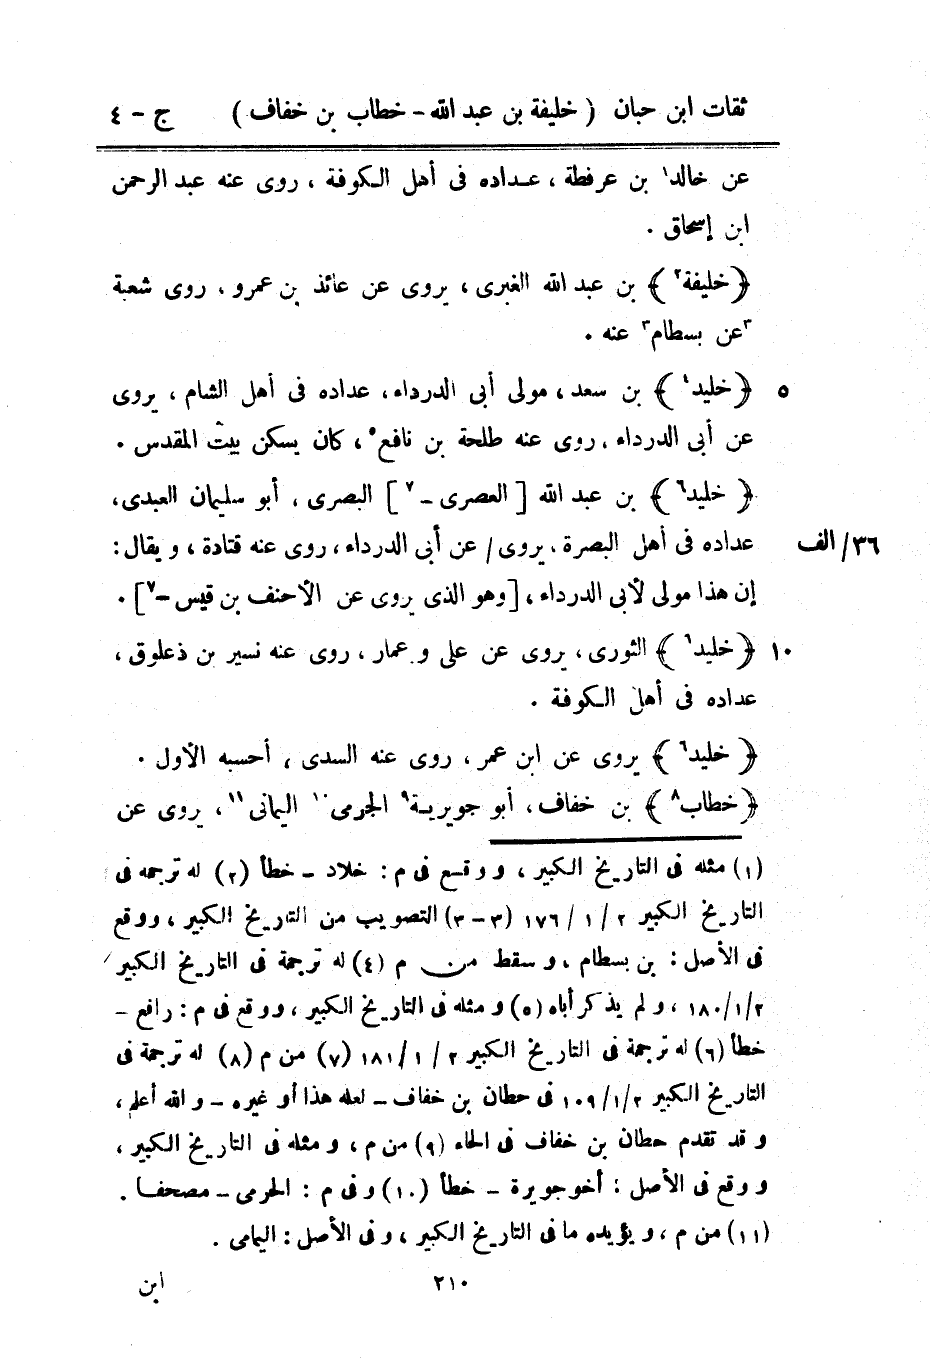 ثقات ابن حبان ( خليفة بن عبد الله - خطاب بن خفاف ) ج - ٤
عن خالد١ بن عرفطة ، عداده فى أهل الكوفة ، روى عنه عبد الرحمن
ابن إسحاق .
﴿ خليفة٢ ﴾ بن عبد الله الغبرى ، يروى عن عائذ بن عمرو ، روى شعبة
٣عن بسطام٣ عنه .
﴿ خليد٤ ﴾ بن سعد ، مولى أبى الدرداء ، عداده فى أهل الشام ، يروى ٥
عن أبى الدرداء ، روى عنه طلحة بن نافع٥ ، كان يسكن بيت المقدس .
﴿ خليد٦ ﴾ بن عبد الله [ العصرى - ٧ ] البصرى ، أبو سليمان العبدى ،
عداده فى أهل البصرة ، يروى / عن أبى الدرداء ، روى عنه قتادة ، و يقال : ٣٦/ الف
إن هذا مولى لأبى الدرداء ، [ وهو الذى يروى عن الأحنف بن قيس -٧ ] .
﴿ خليد٦ ﴾ الثورى ، يروى عن على و عمار ، روى عنه نسير بن ذعلوق ، ١٠
عداده فى أهل الكوفة .
﴿ خليد٦ ﴾ يروى عن ابن عمر ، روى عنه السدى ، أحسبه الأول .
﴿ خطاب٨ ﴾ بن خفاف ، أبو جويرية٩ الجرمى١٠ اليمانى١١ ، يروى عن
(١) مثله فى التاريخ الكبير ، و وقع فى م : خلاد - خطأ (٢) له ترجمه فى
التاريخ الكبير ٢ / ١ / ١٧٦ (٣-٣) التصويب من التاريخ الكبير ، ووقع
فى الأصل : بن بسطام ، و سقط من م (٤) له ترجمة فى التاريخ الكبير
٢/١/ ١٨٠ ، و لم يذكر أباه (٥) و مثله فى التاريخ الكبير ، ووقع فى م : رافع -
خطأ (٦) له ترجمة فى التاريخ الكبير ٢ / ١ / ١٨١ (٧) من م (٨) له ترجمة فى
التاريخ الكبير ٢ /١/ ١٠٩ فى حطان بن خفاف - لعله هذا أو غيره - و الله أعلم ،
و قد تقدم حطان بن خفاف فى الحاء (٩) من م ، و مثله فى التاريخ الكبير ،
و وقع فى الأصل : أخوجويرة - خطأ (١٠) و فى م : الحرمى - مصحفا .
(١١) من م ، و يؤيده ما فى التاريخ الكبير ، و فى الأصل : اليمامى .
٢١٠ ابن